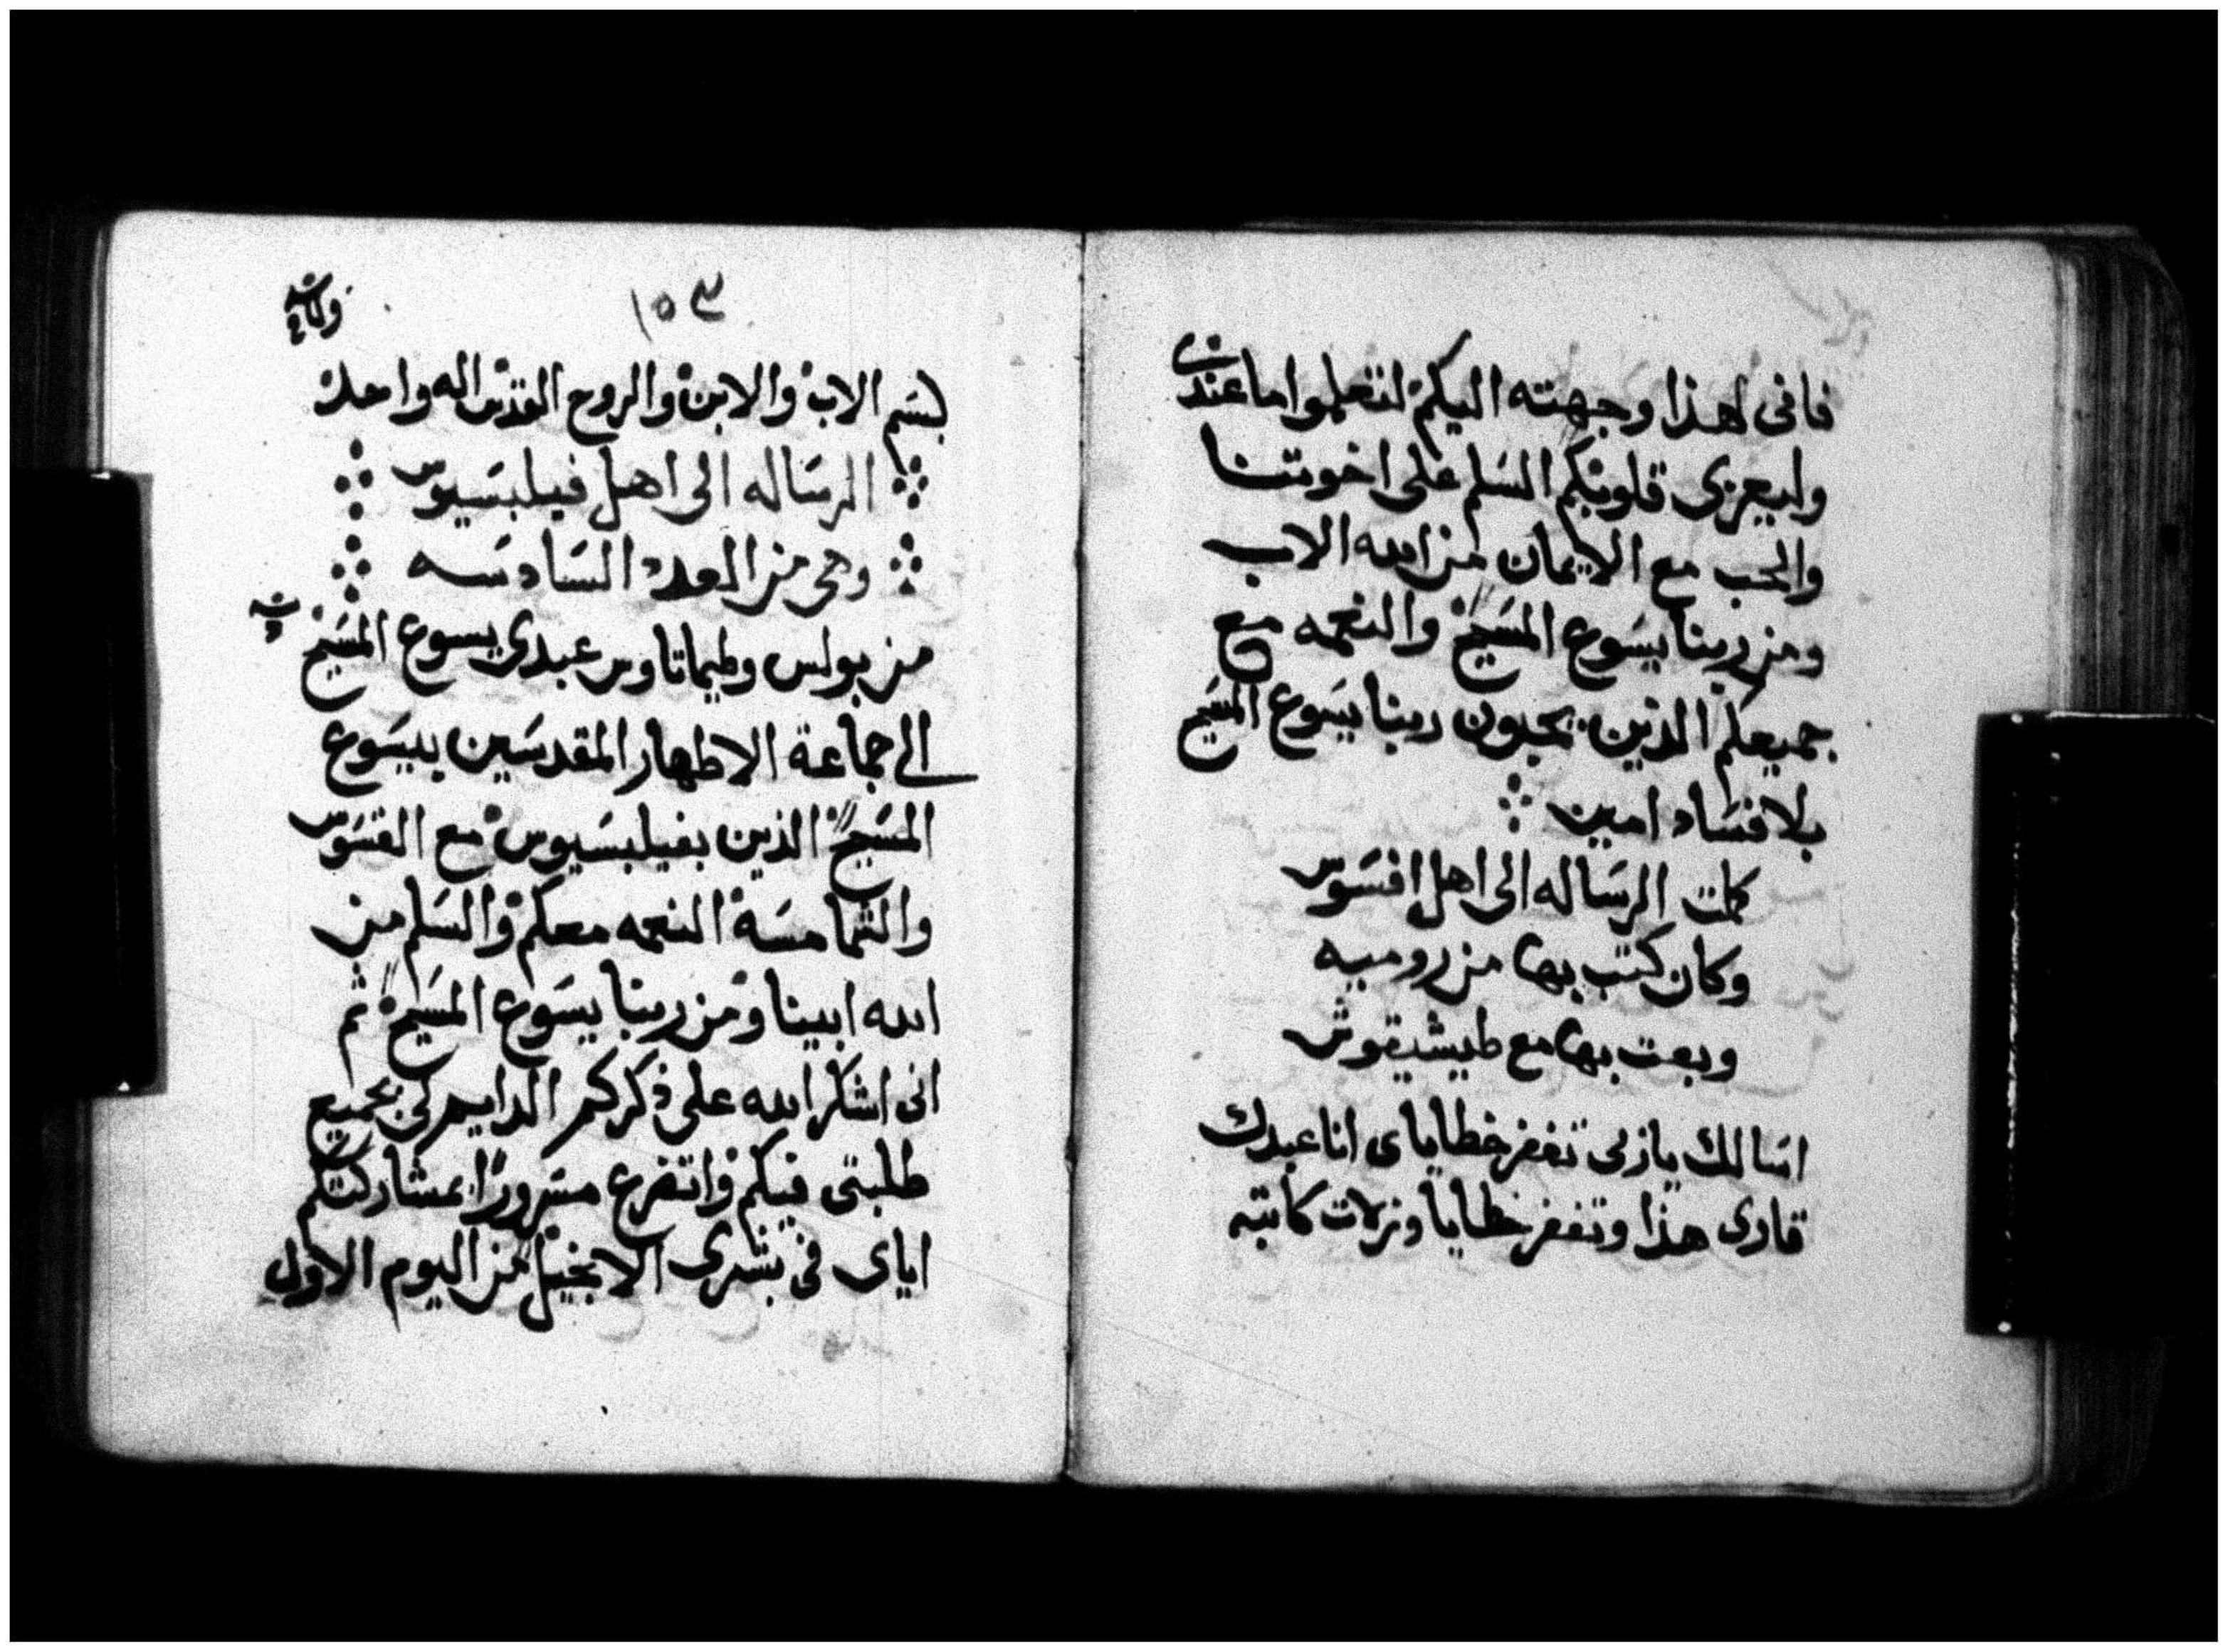 فانى لهذا وجهته اليكم لتعلموا ما عندى
وليعزى قلوبكم السلم على اخوتنا
والحب مع الايمان من الله الاب
ومن ربنا يسوع المسيح والنعمه مع
جميعكم الذين يحبون ربنا يسوع المسيح
بلا فساد امين
كملت الرساله الى اهل افسوس
وكان كتب بها من روميه
وبعت بها مع طيشيقوش
اسالك يا رب تغفر خطاياى انا عبدك
قارى هذا وتغفر خطايا وزلات كاتبه
١٥٣
بسم الاب والابن والروح القدس اله واحد
الرساله الى اهل فيلبسيوس
وهى من العدد السادسه
من بولس وطيماتاوس عبدى يسوع المسيح
الى جماعة الاطهار المقدسين بيسوع
المسيح الذين بفيلبسيوس مع القسوس
والشمامسة النعمه معكم والسلم من
الله ابينا ومن ربنا يسوع المسيح ثم
انى اشكر الله على ذكركم الدايم لى بجميع
طلبتى فيكم واتضرع مسرورًا بمشاركتكم
اياى فى بشرى الانجيل من اليوم الاول